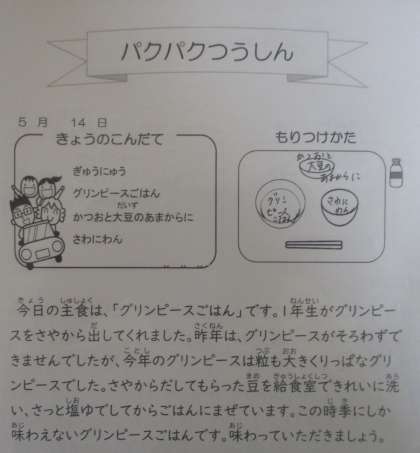 パクパクつうしん
5月 14日
きょうのこんだて
ぎゅうにゅう
グリンピースごはん
かつおと大豆のあまからに
さわにわん
もりつけかた
かつおと
大豆の
あまからに
グリン
ピース
ごはん
さわに
わん
今日の主食は、「グリンピースごはん」です。1年生がグリンピー
スをさやから出してくれました。昨年は、グリンピースがそろわずで
きませんでしたが、今年のグリンピースは粒も大きくりっぱなグリ
ンピースでした。さやからだしてもらった豆を給食室できれいに洗
い、さっと塩ゆでしてからごはんにまぜています。この時季にしか
味わえないグリンピースごはんです。味わっていただきましょう。